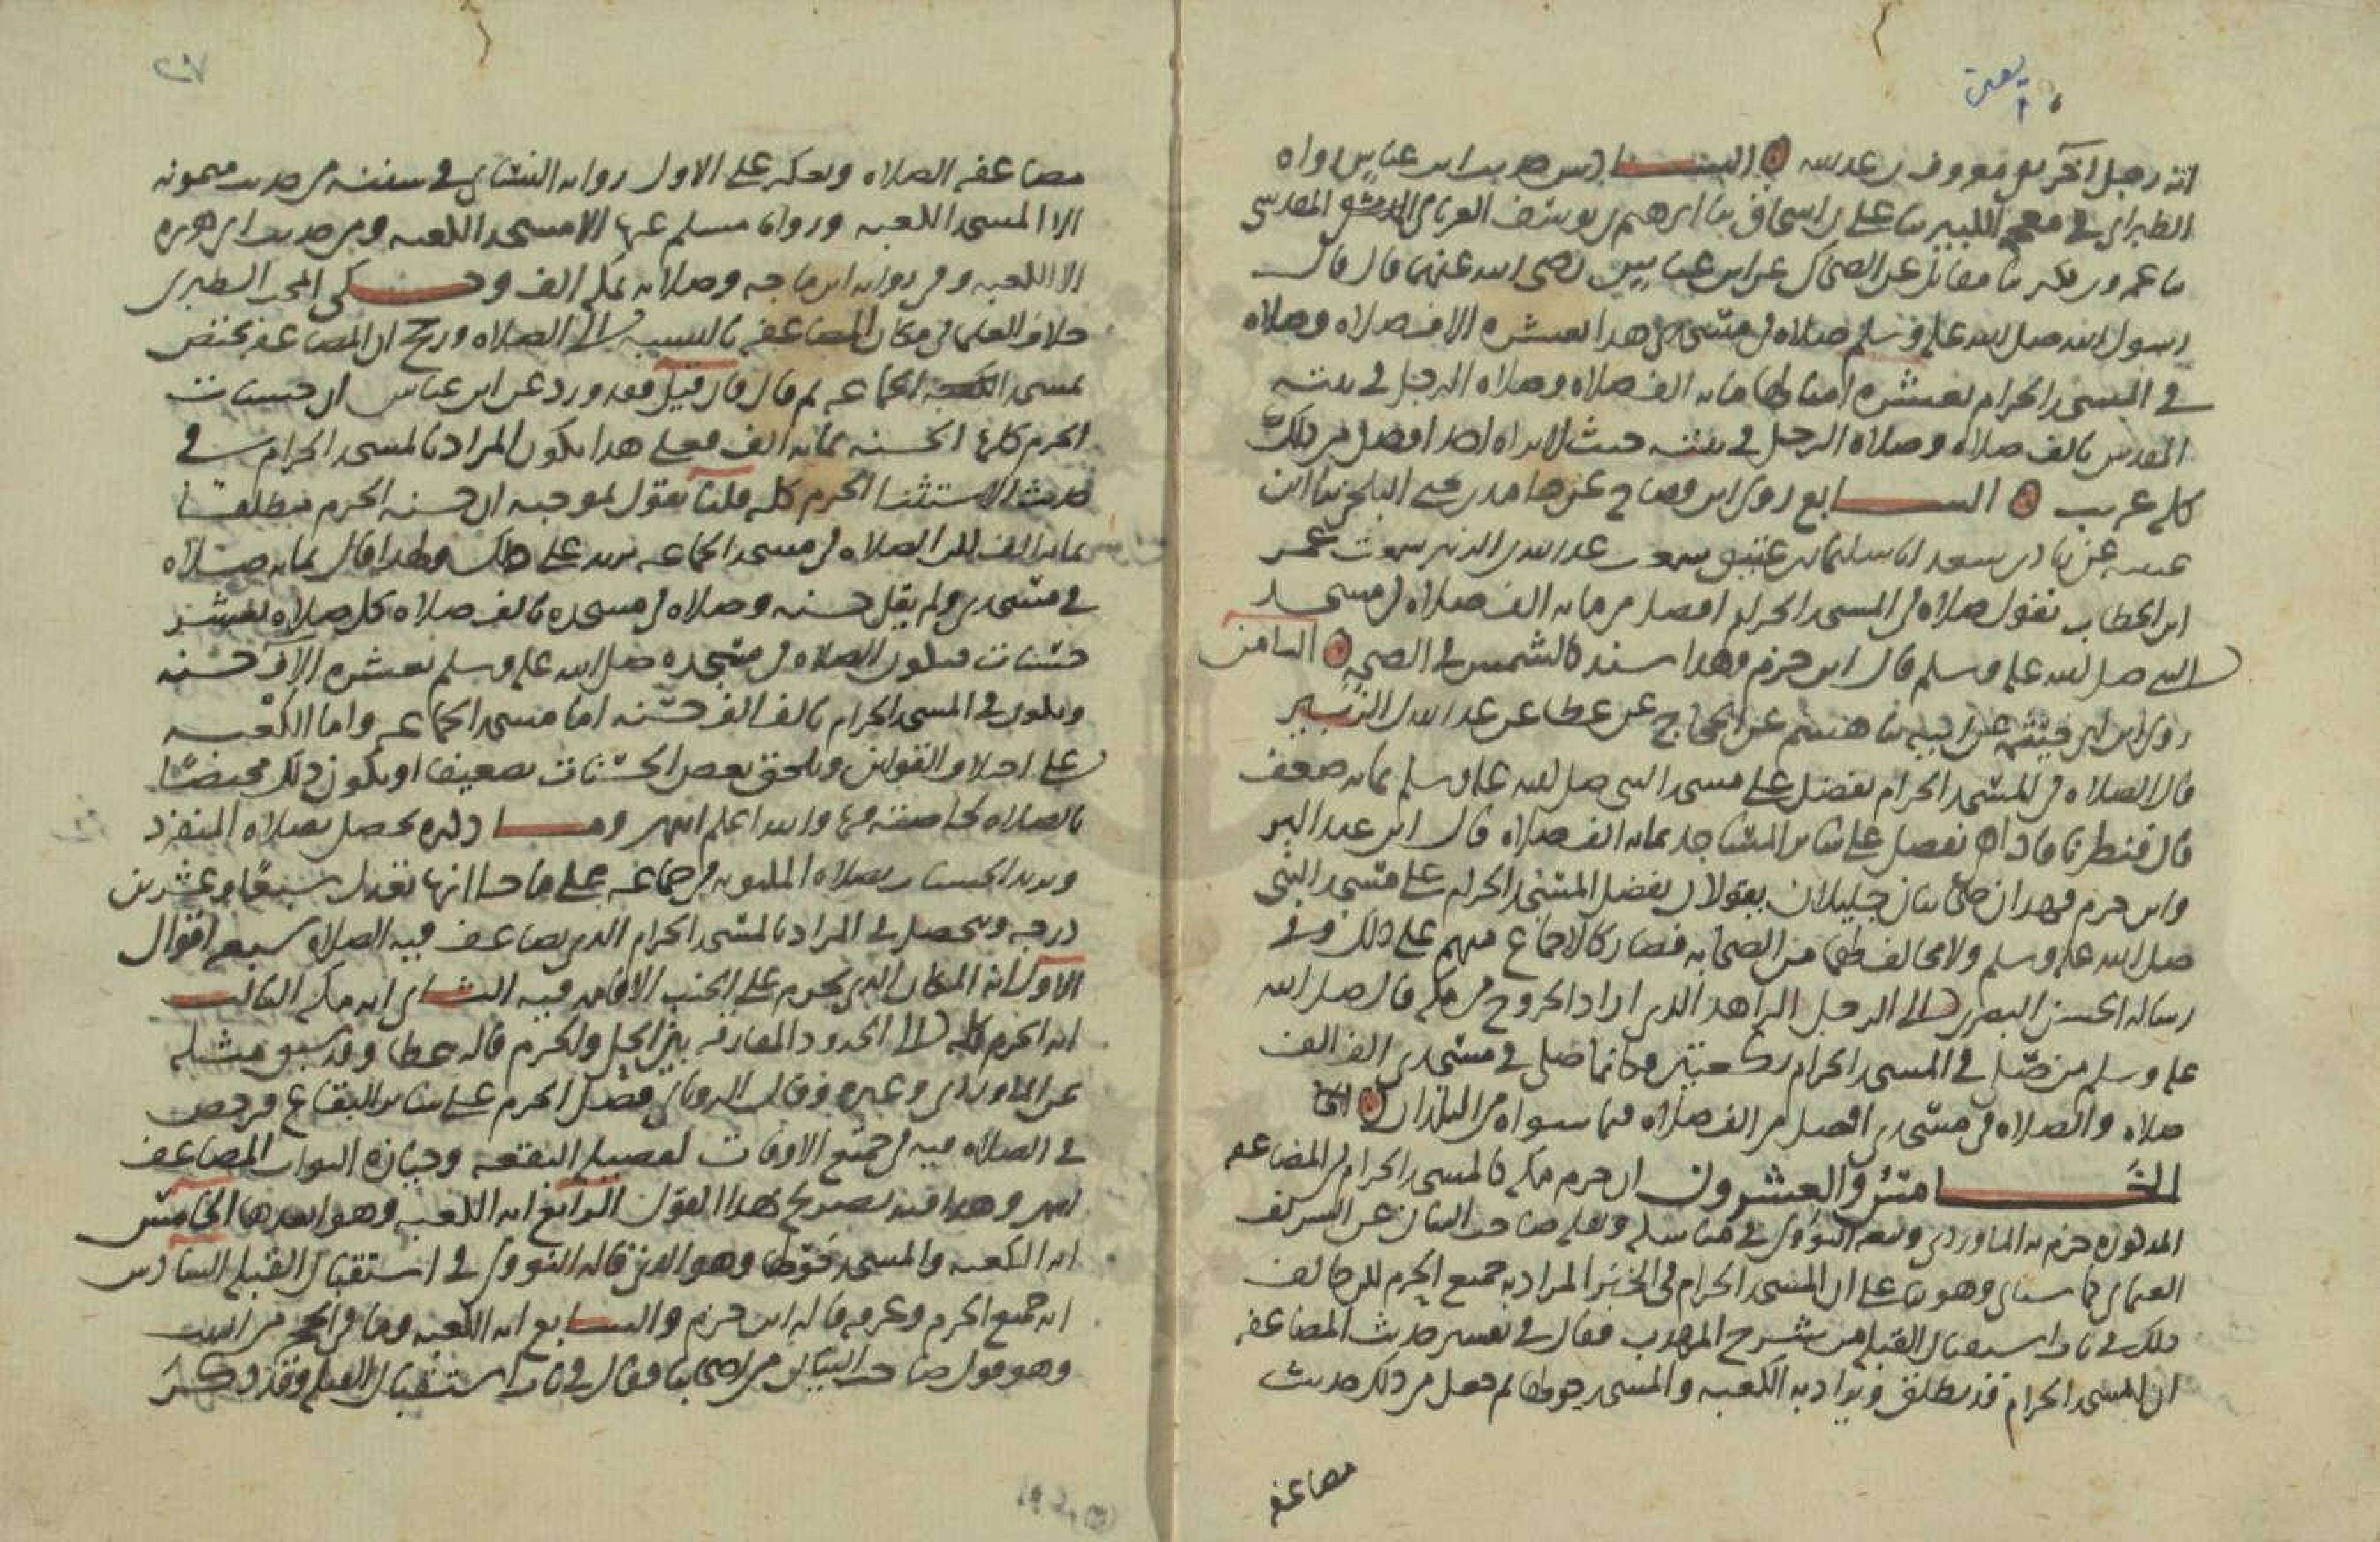 انه رجل آخر يعرف بن عبد الله السادس حديث ابن عباس رواه
الطبراني في معجمه الكبير ثنا علي بن اسحاق ثنا ابرهيم بن يوسف الفريابي المقدسي
ثنا عمرو بن بكر ثنا مقاتل عن الضحاك عن ابن عباس رضي الله عنهما قال قال
رسول الله صلى الله عليه وسلم صلاه في مسجدي هذا بعشره الاف صلاه وصلاه
في المسجد الحرام بعشره امثالها مايه الف صلاه وصلاه الرجل في بيت
المقدس بالف صلاه وصلاه الرجل في بيته حيث لا يراه احد افضل من ذلك
كله غريب السابع روى ابن وضاح عن حامد بن يحيى البلخي ثنا ابن
عيينه عن زياد بن سعد انا سليمان بن عتيق سمعت عبد الله بن الزبير سمعت عمر
ابن الخطاب يقول صلاه في المسجد الحرام افضل من مايه الف صلاه في مسجد
النبي صلى الله عليه وسلم قال ابن حزم وهذا سند كالشمس في الصحه الثامن
روى ابن ابي خيثمه عن ابيه ثنا هشيم عن الحجاج عن عطا عن عبد الله بن الزبير
قال الصلاه في المسجد الحرام تفضل على مسجد النبي صلى الله عليه وسلم بمايه ضعف
قال فنظرنا فاذا هي تفضل على ساير المساجد بمايه الف صلاه قال ابن عبد البر
وابن حزم فهذان صحابيان جليلان يقولان بفضل المسجد الحرام على مسجد النبي
صلى الله عليه وسلم ولا مخالف لهما من الصحابه فصار كالاجماع منهم على ذلك وفي
رساله الحسن البصري الى الرجل الزاهد الذي اراد الخروج من مكه قال صلى الله
عليه وسلم من صلى في المسجد الحرام ركعتين فكانما صلى في مسجدي الف الف
صلاه والصلاه في مسجدي افضل من الف صلاه فيما سواه من البلدان
الخامس والعشرون ان حرم مكه كالمسجد الحرام في المضاعفه
المذكوره جزم به الماوردي وتبعه النووي في مناسكه ونقله صاحب البيان عن الشريف
العثماني كما سياتي وهو بنا على ان المسجد الحرام في الخبر المراد به جميع الحرم لكن خالف
ذلك في باب استقبال القبله من شرح المهذب فقال في تفسير حديث المضاعفه
ان المسجد الحرام قد يطلق ويراد به الكعبه والمسجد حولها ثم جعل من ذلك حديث
مضاعفه
٢٠٧
مضاعفه الصلاه ويعكر على الاول روايه النسائي في سننه من حديث ميمونه
الا المسجد الكعبه وروايه مسلم عنها الا مسجد الكعبه ومن حديث ابي هريره
الا الكعبه وفي روايه ابن ماجه وصلاه بمكه الف وحكى المحب الطبري
خلاف العلما في مكان المضاعفه بالنسبه الى الصلاه ورجح ان المضاعفه تختص
بمسجد الجماعه ثم قال فان قيل فقد ورد عن ابن عباس ان حسنات
الحرم كلها الحسنه بمايه الف فعلى هذا يكون المراد بالمسجد الحرام في
حديث الاستثنا الحرم كله قلنا نقول بموجبه ان حسنه الحرم مطلقا
بمايه الف لكن الصلاه في مسجد الجماعه تزيد على ذلك ولهذا قال بمايه صلاه
في مسجدي ولم يقل حسنه وصلاه في مسجده بالف صلاه كل صلاه بعشر
حسنات فتكون الصلاه في مسجده صلى الله عليه وسلم بعشره الاف حسنه
وتكون في المسجد الحرام بالف الف حسنه اما مسجد الجماعه واما الكعبه
على اختلاف القولين وتلحق بعض الحسنات ببعض او يكون ذلك مختصا
بالصلاه لخاصيه فيها والله اعلم انتهى وما ذكره يحصل بصلاه المنفرد
وتزيد الحسنات بصلاه المكتوبه في جماعه على ما جا انها تعدل سبعا وعشرين
درجه ويتحصل في المراد بالمسجد الحرام الذي يضاعف فيه الصلاه سبعه اقوال
الاول انه المكان الذي يحرم على الجنب الاقامه فيه الثاني انه مكه الثالث
انه الحرم كله الى الحدود الفارقه بين الحل والحرم قاله عطا وقد سبق مثله
عن الماوردي وغيره وقال الروياني فضل الحرم على ساير البقاع فرخص
في الصلاه فيه في جميع الاوقات لفضيله البقعه وحيازه الثواب المضاعف
انتهى وهذا فيه تصريح بهذا القول الرابع انه الكعبه وهو ابعدها الخامس
انه الكعبه والمسجد حولها وهو الذي قاله النووي في استقبال القبله السادس
انه جميع الحرم وعرفه قاله ابن حزم والسابع انه الكعبه وما في الحجر من البيت
وهو قول صاحب البيان من اصحابنا فقال في باب استقبال القبله وقد ذكر